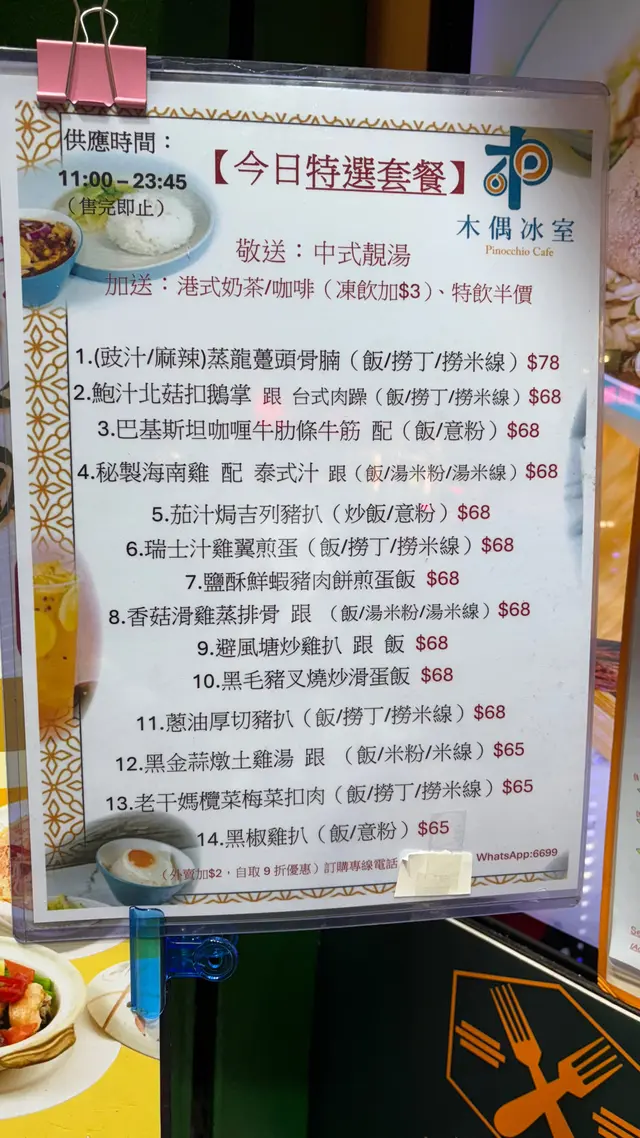 供應時間：
11:00 – 23:45
（售完即止）
【今日特選套餐】
木偶冰室
Pinocchio Cafe
敬送：中式靚湯
加送：港式奶茶/咖啡（凍飲加$3）、特飲半價
1.(豉汁/麻辣)蒸龍躉頭骨腩（飯/撈丁/撈米線）$78
2.鮑汁北菇扣鵝掌 跟 台式肉躁（飯/撈丁/撈米線）$68
3.巴基斯坦咖喱牛肋條牛筋 配（飯/意粉）$68
4.秘製海南雞 配 泰式汁 跟（飯/湯米粉/湯米線）$68
5.茄汁焗吉列豬扒（炒飯/意粉）$68
6.瑞士汁雞翼煎蛋（飯/撈丁/撈米線）$68
7.鹽酥鮮蝦豬肉餅煎蛋飯 $68
8.香菇滑雞蒸排骨 跟 （飯/湯米粉/湯米線）$68
9.避風塘炒雞扒 跟 飯 $68
10.黑毛豬叉燒炒滑蛋飯 $68
11.蔥油厚切豬扒（飯/撈丁/撈米線）$68
12.黑金蒜燉土雞湯 跟 （飯/米粉/米線）$65
13.老干媽欖菜梅菜扣肉（飯/撈丁/撈米線）$65
14.黑椒雞扒（飯/意粉）$65
（外賣加$2，自取 9 折優惠）訂購專線電話 WhatsApp:6699